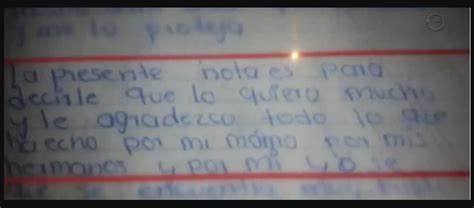 y me lo proteja
La presente nota es para
decirle que lo quiero mucho
y le agradezco todo lo que
ha echo por mi mamá por mis
hermanos y por mi yo se
que se encuentra